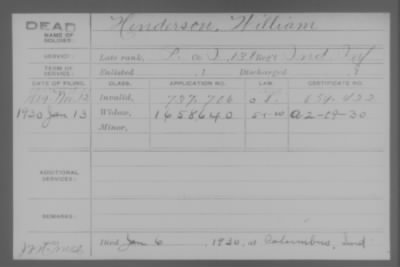 DEAD
NAME OF SOLDIER:
Henderson, William
SERVICE:
Late rank, P. Co I, 13 Ind
TERM OF SERVICE:
Enlisted , ? Discharged , ?
DATE OF FILING. CLASS. APPLICATION NO. LAW. CERTIFICATE NO.
12 Invalid, 737.706
1920 Jan 13 Widow, 1658640 A2-19-30
Minor,
ADDITIONAL SERVICES:
REMARKS:
Died Jan 6 , 1920, at Columbus, Ind